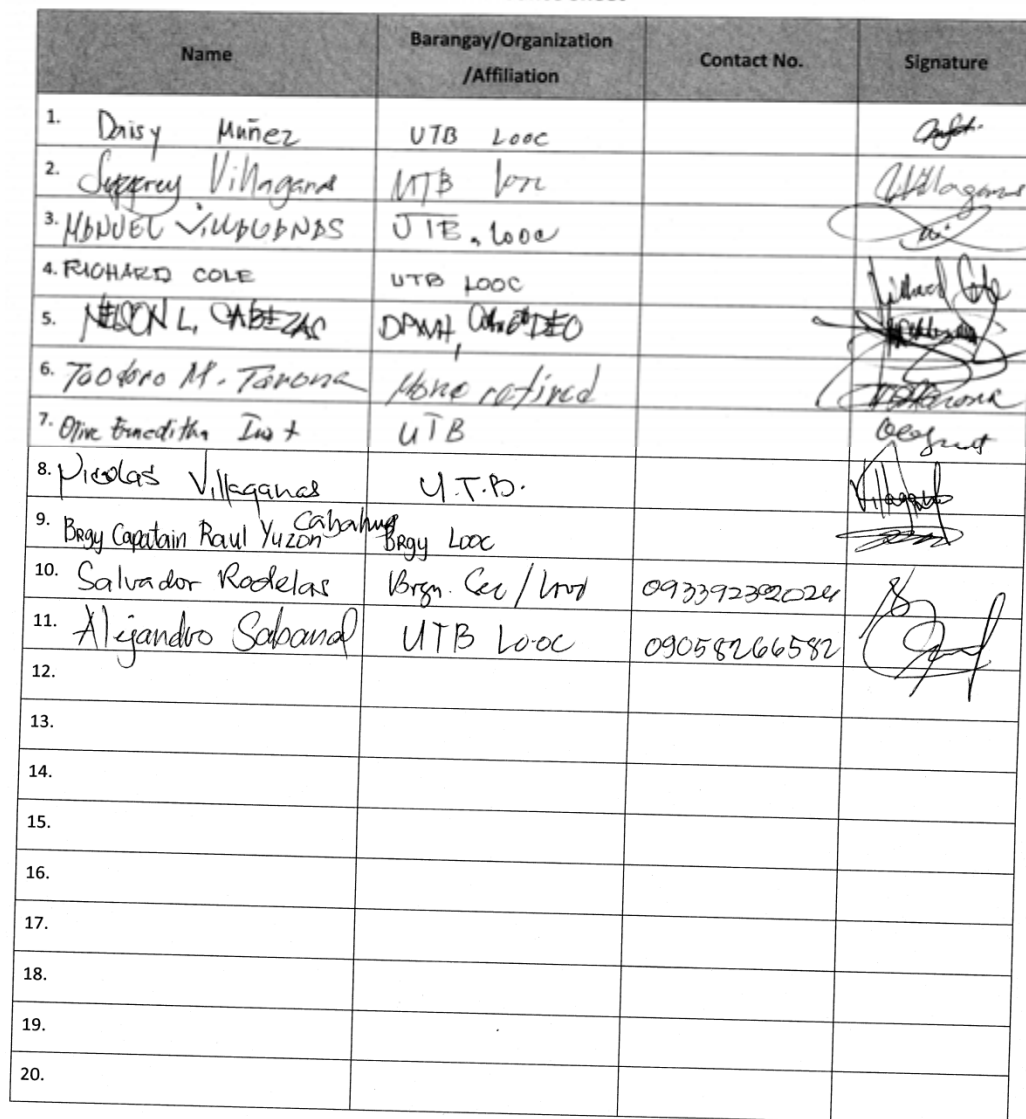 Name Barangay/Organization /Affiliation Contact No. Signature
1. Daisy Muñez UTB Looc
2. Villaganas UTB
3. MANUEL VILLAGANAS UTB, Looc
4. RICHARD COLE UTB LOOC Richard Cole
5. NELSON L. CABEZAS DPWH, DEO
6. Teodoro M. Tarona None retired
7. Olive UTB
8. Nicolas Villaganas U.T.B. Villaganas
9. Brgy Capatain Raul Yuzon Cabahug Brgy Looc
10. Salvador Rodelas Brgy. Sec / Looc 093392392024
11. Alejandro Sabanal UTB Looc 09058266582
12.
13.
14.
15.
16.
17.
18.
19.
20.